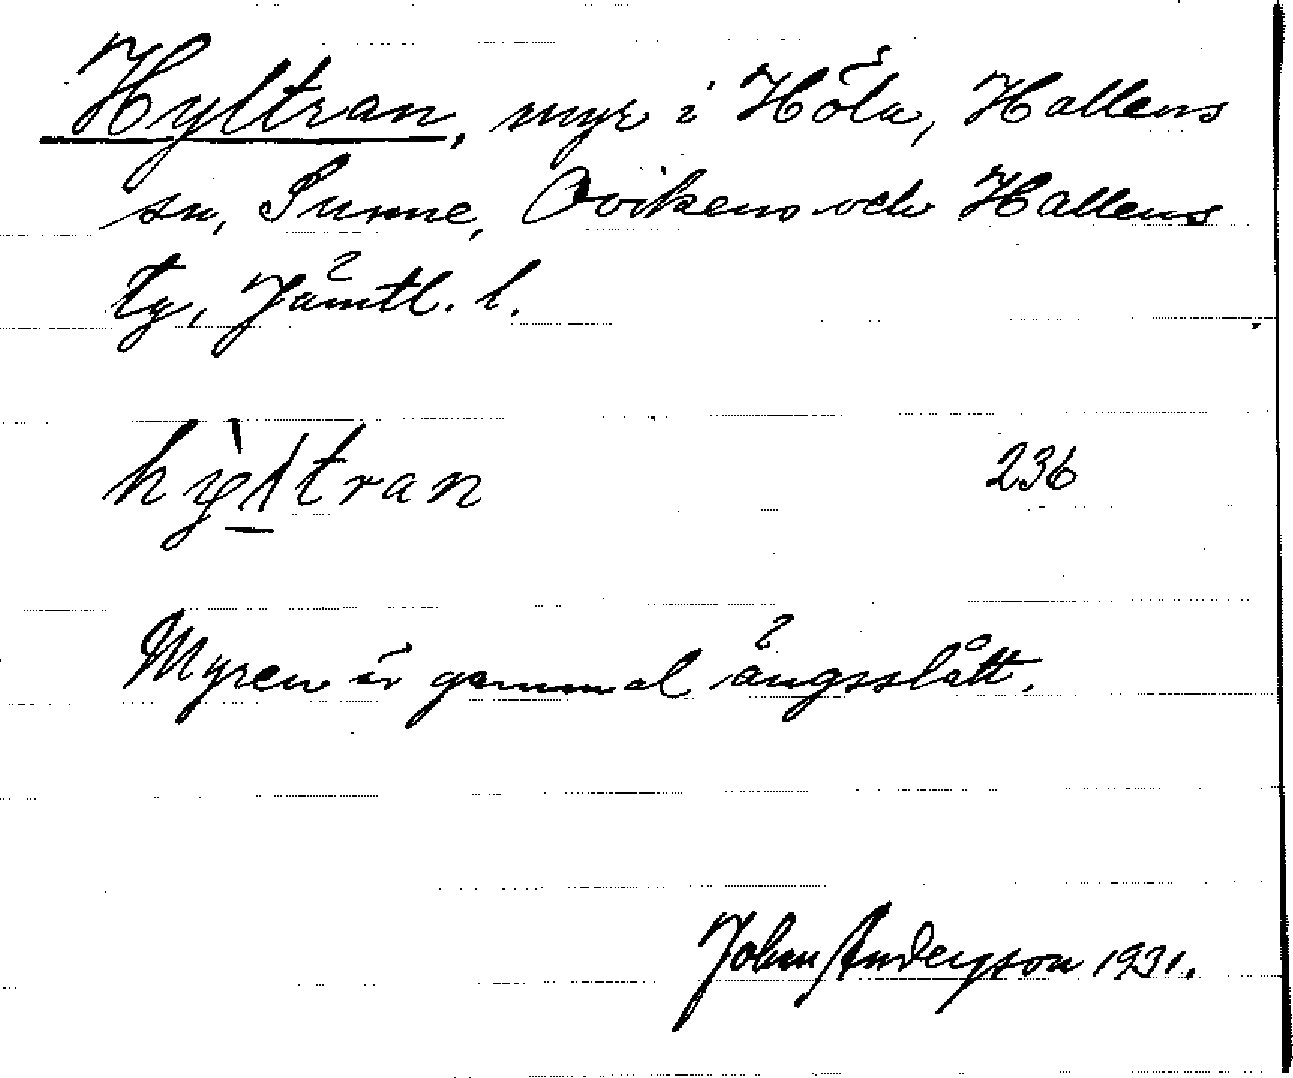 Hyltran, myr i Höla, Hallens
sn, Sunne, Ovikens och Hallens
tg, Jämtl. l.
hỳltran 236
Myren är gammal ängsslått.
John Andersson 1931.